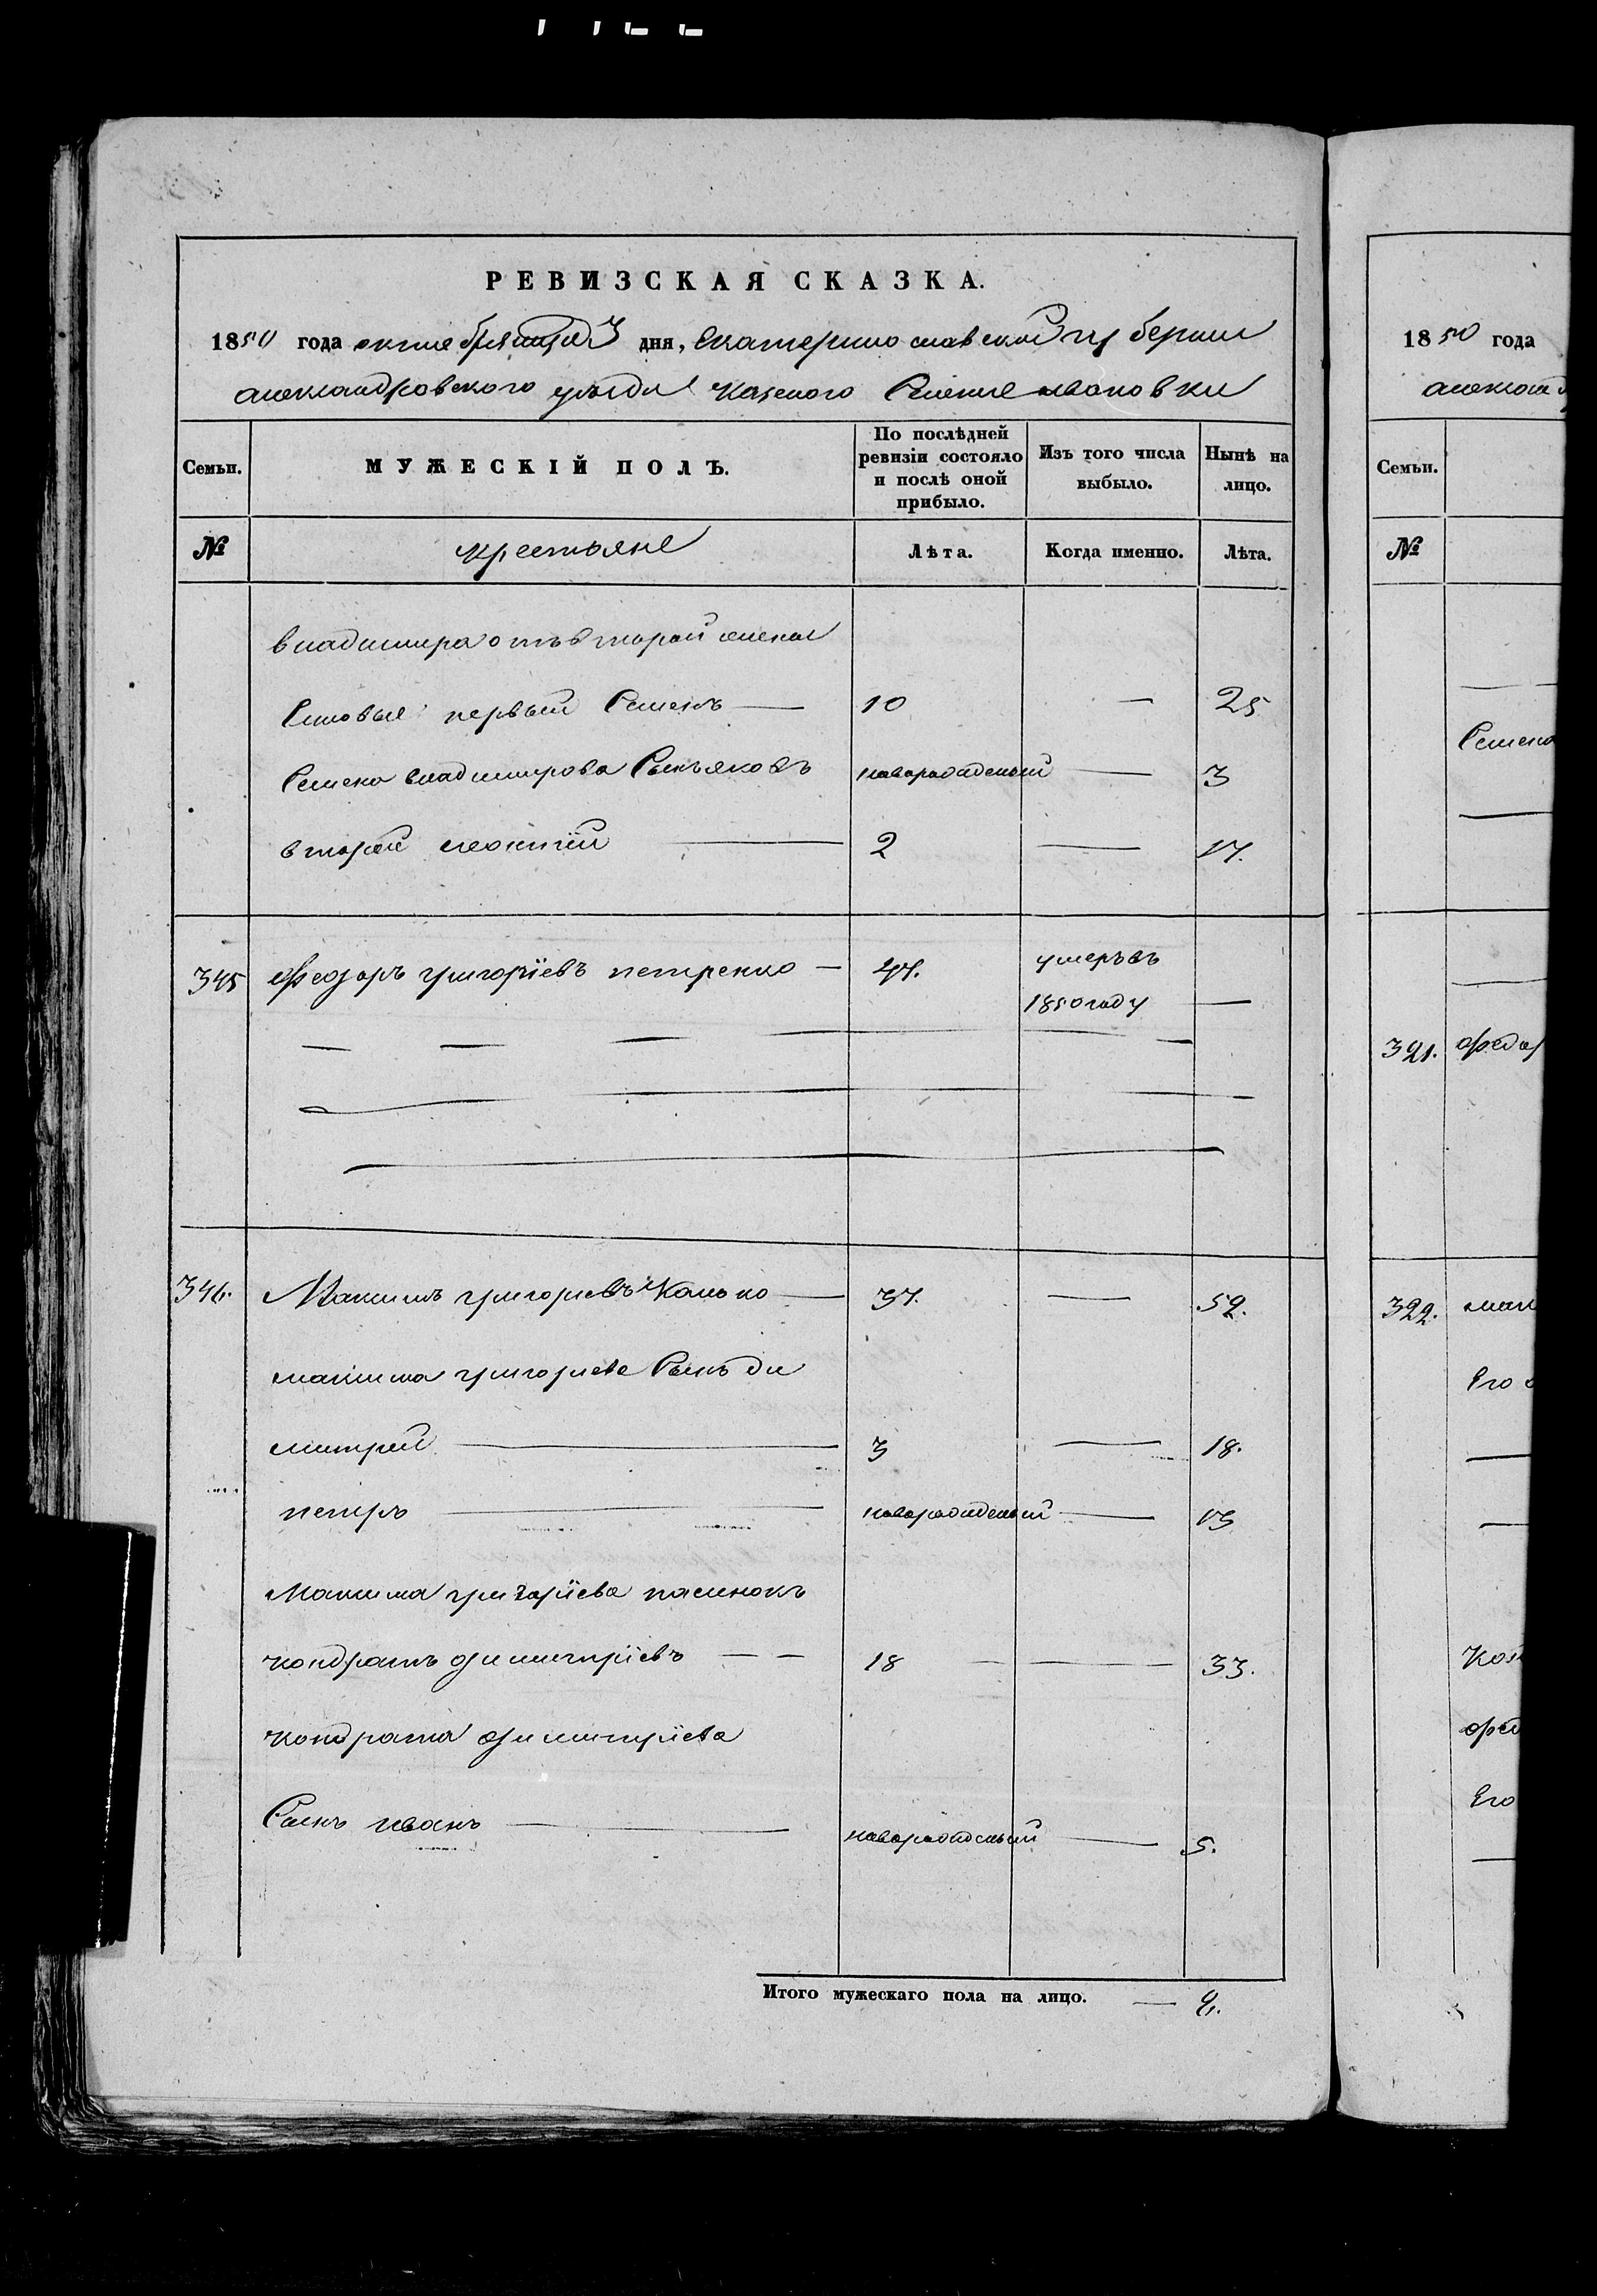 РЕВИЗСКАЯ СКАЗКА.
1850 года октября 3 дня, Екатеринославской губернии
александровского уезда казеного Селения ивановки
Семьи. МУЖЕСКІЙ ПОЛЪ. По послѣдней ревизіи состояло и послѣ оной прибыло. Изъ того числа выбыло. Нынѣ на лицо.
№ крестьяне Лѣта. Когда именно. Лѣта.
владимира отъ второй жены
Сыновья первый Семенъ — 10 — 25
Семена владимирова Сынъ яковъ новорожденый — 3
второй — 2 — 17.
345 Феодоръ григоріевъ петренко — 47. умеръ въ
1850 году —
346. Максимъ григорьевъ Калько — 37. — 52.
максима григорьева Сынъ ди
митрей — 3 — 18.
петръ — новорожденый — 13
Максима григоріева пасинокъ
кондратъ димитріевъ — — 18 — — 33.
кондрата димитріева
Сынъ иванъ — новорожденый — 5.
Итого мужескаго пола на лицо. —
1850 года
александ
Семьи.
№
Семена
321. федор
322. мак
Его
Кон
фед
Его